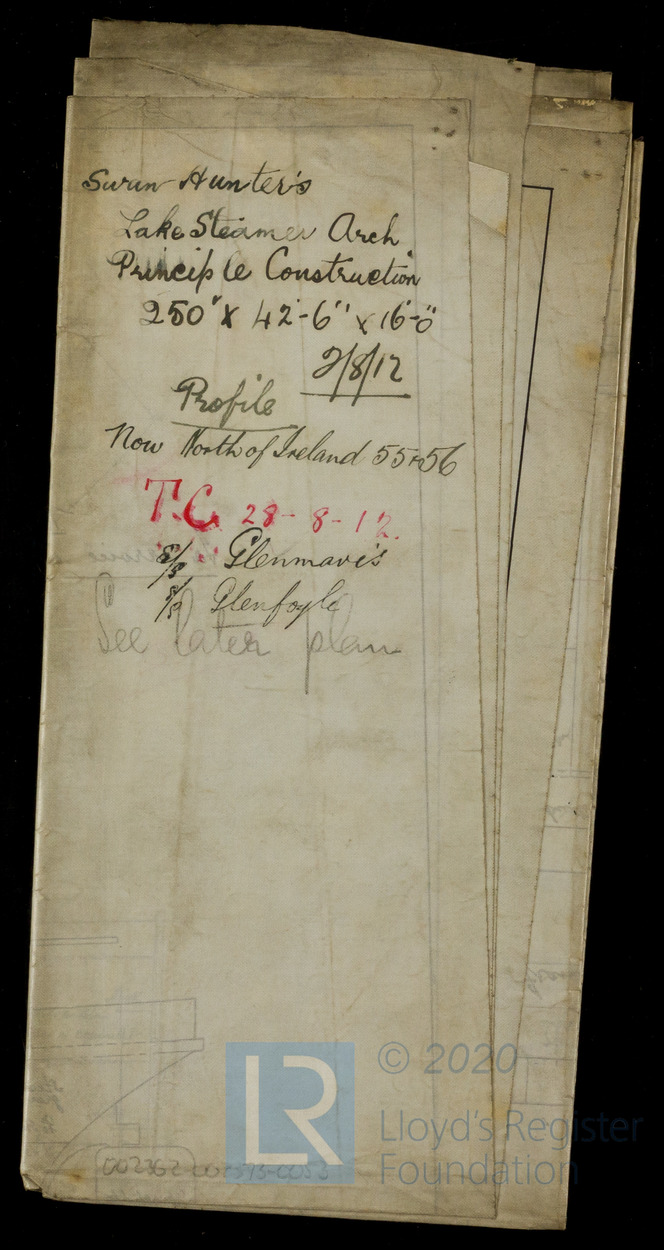 Swan Hunter's
Lake Steamer Arch
Principle Construction
250' x 42'-6" x 16'-0"
2/8/12
Profile
Now North of Ireland 55+56
T.C. 28-8-12.
S/S Glenmavis
S/S Glenfoyle
See later plan
LR © 2020
Lloyd's Register
Foundation